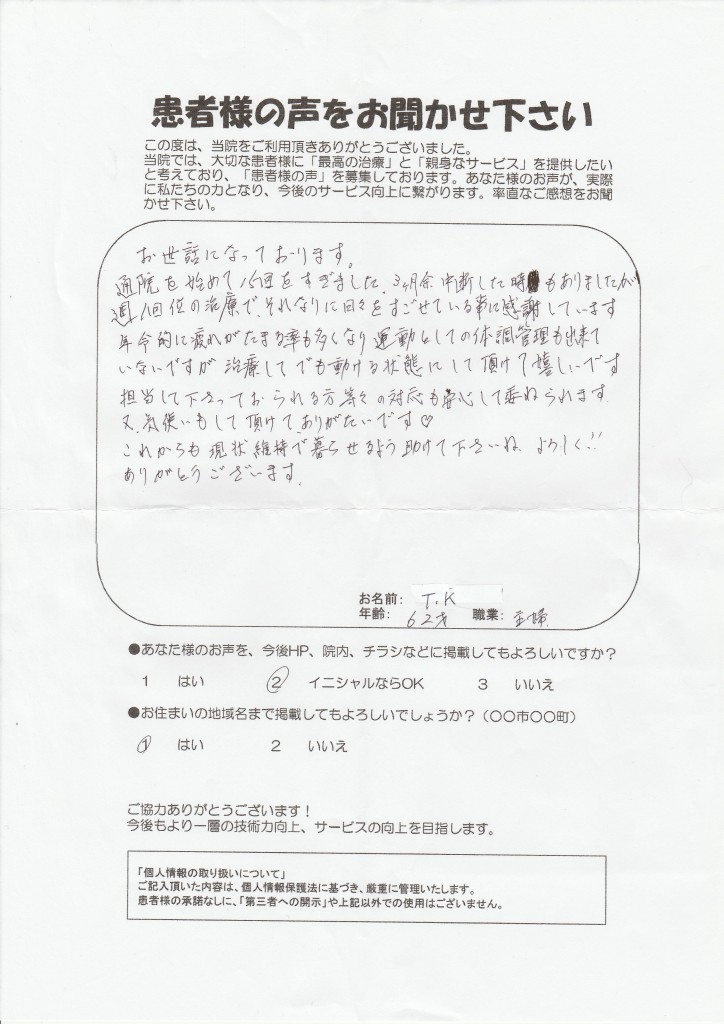 患者様の声をお聞かせ下さい
この度は、当院をご利用頂きありがとうございました。
当院では、大切な患者様に「最高の治療」と「親身なサービス」を提供したい
と考えており、「患者様の声」を募集しております。あなた様のお声が、実際
に私たちの力となり、今後のサービス向上に繋がります。率直なご感想をお聞
かせ下さい。
お世話になっております。
通院を始めて15回をすぎました、3ヶ月余中断した時もありましたが
週1回位の治療で、それなりに日々をすごせている事に感謝しています
年令的に疲れがたまる率も多くなり運動としての体調管理も出来て
いないですが治療してでも動ける状態にして頂けて嬉しいです
担当して下さっておられる方等々の対応も安心して委ねられます。
又、気使いもして頂けて、ありがたいです♡
これからも現状維持で暮らせるよう助けて下さいね、よろしく!!
ありがとうございます。
お名前: T.K
年齢: 62才 職業: 主婦
●あなた様のお声を、今後HP、院内、チラシなどに掲載してもよろしいですか?
1 はい ② イニシャルならOK 3 いいえ
●お住まいの地域名まで掲載してもよろしいでしょうか?(〇〇市〇〇町)
① はい 2 いいえ
ご協力ありがとうございます!
今後もより一層の技術力向上、サービスの向上を目指します。
「個人情報の取り扱いについて」
ご記入頂いた内容は、個人情報保護法に基づき、厳重に管理いたします。
患者様の承諾なしに、「第三者への開示」や上記以外での使用はございません。